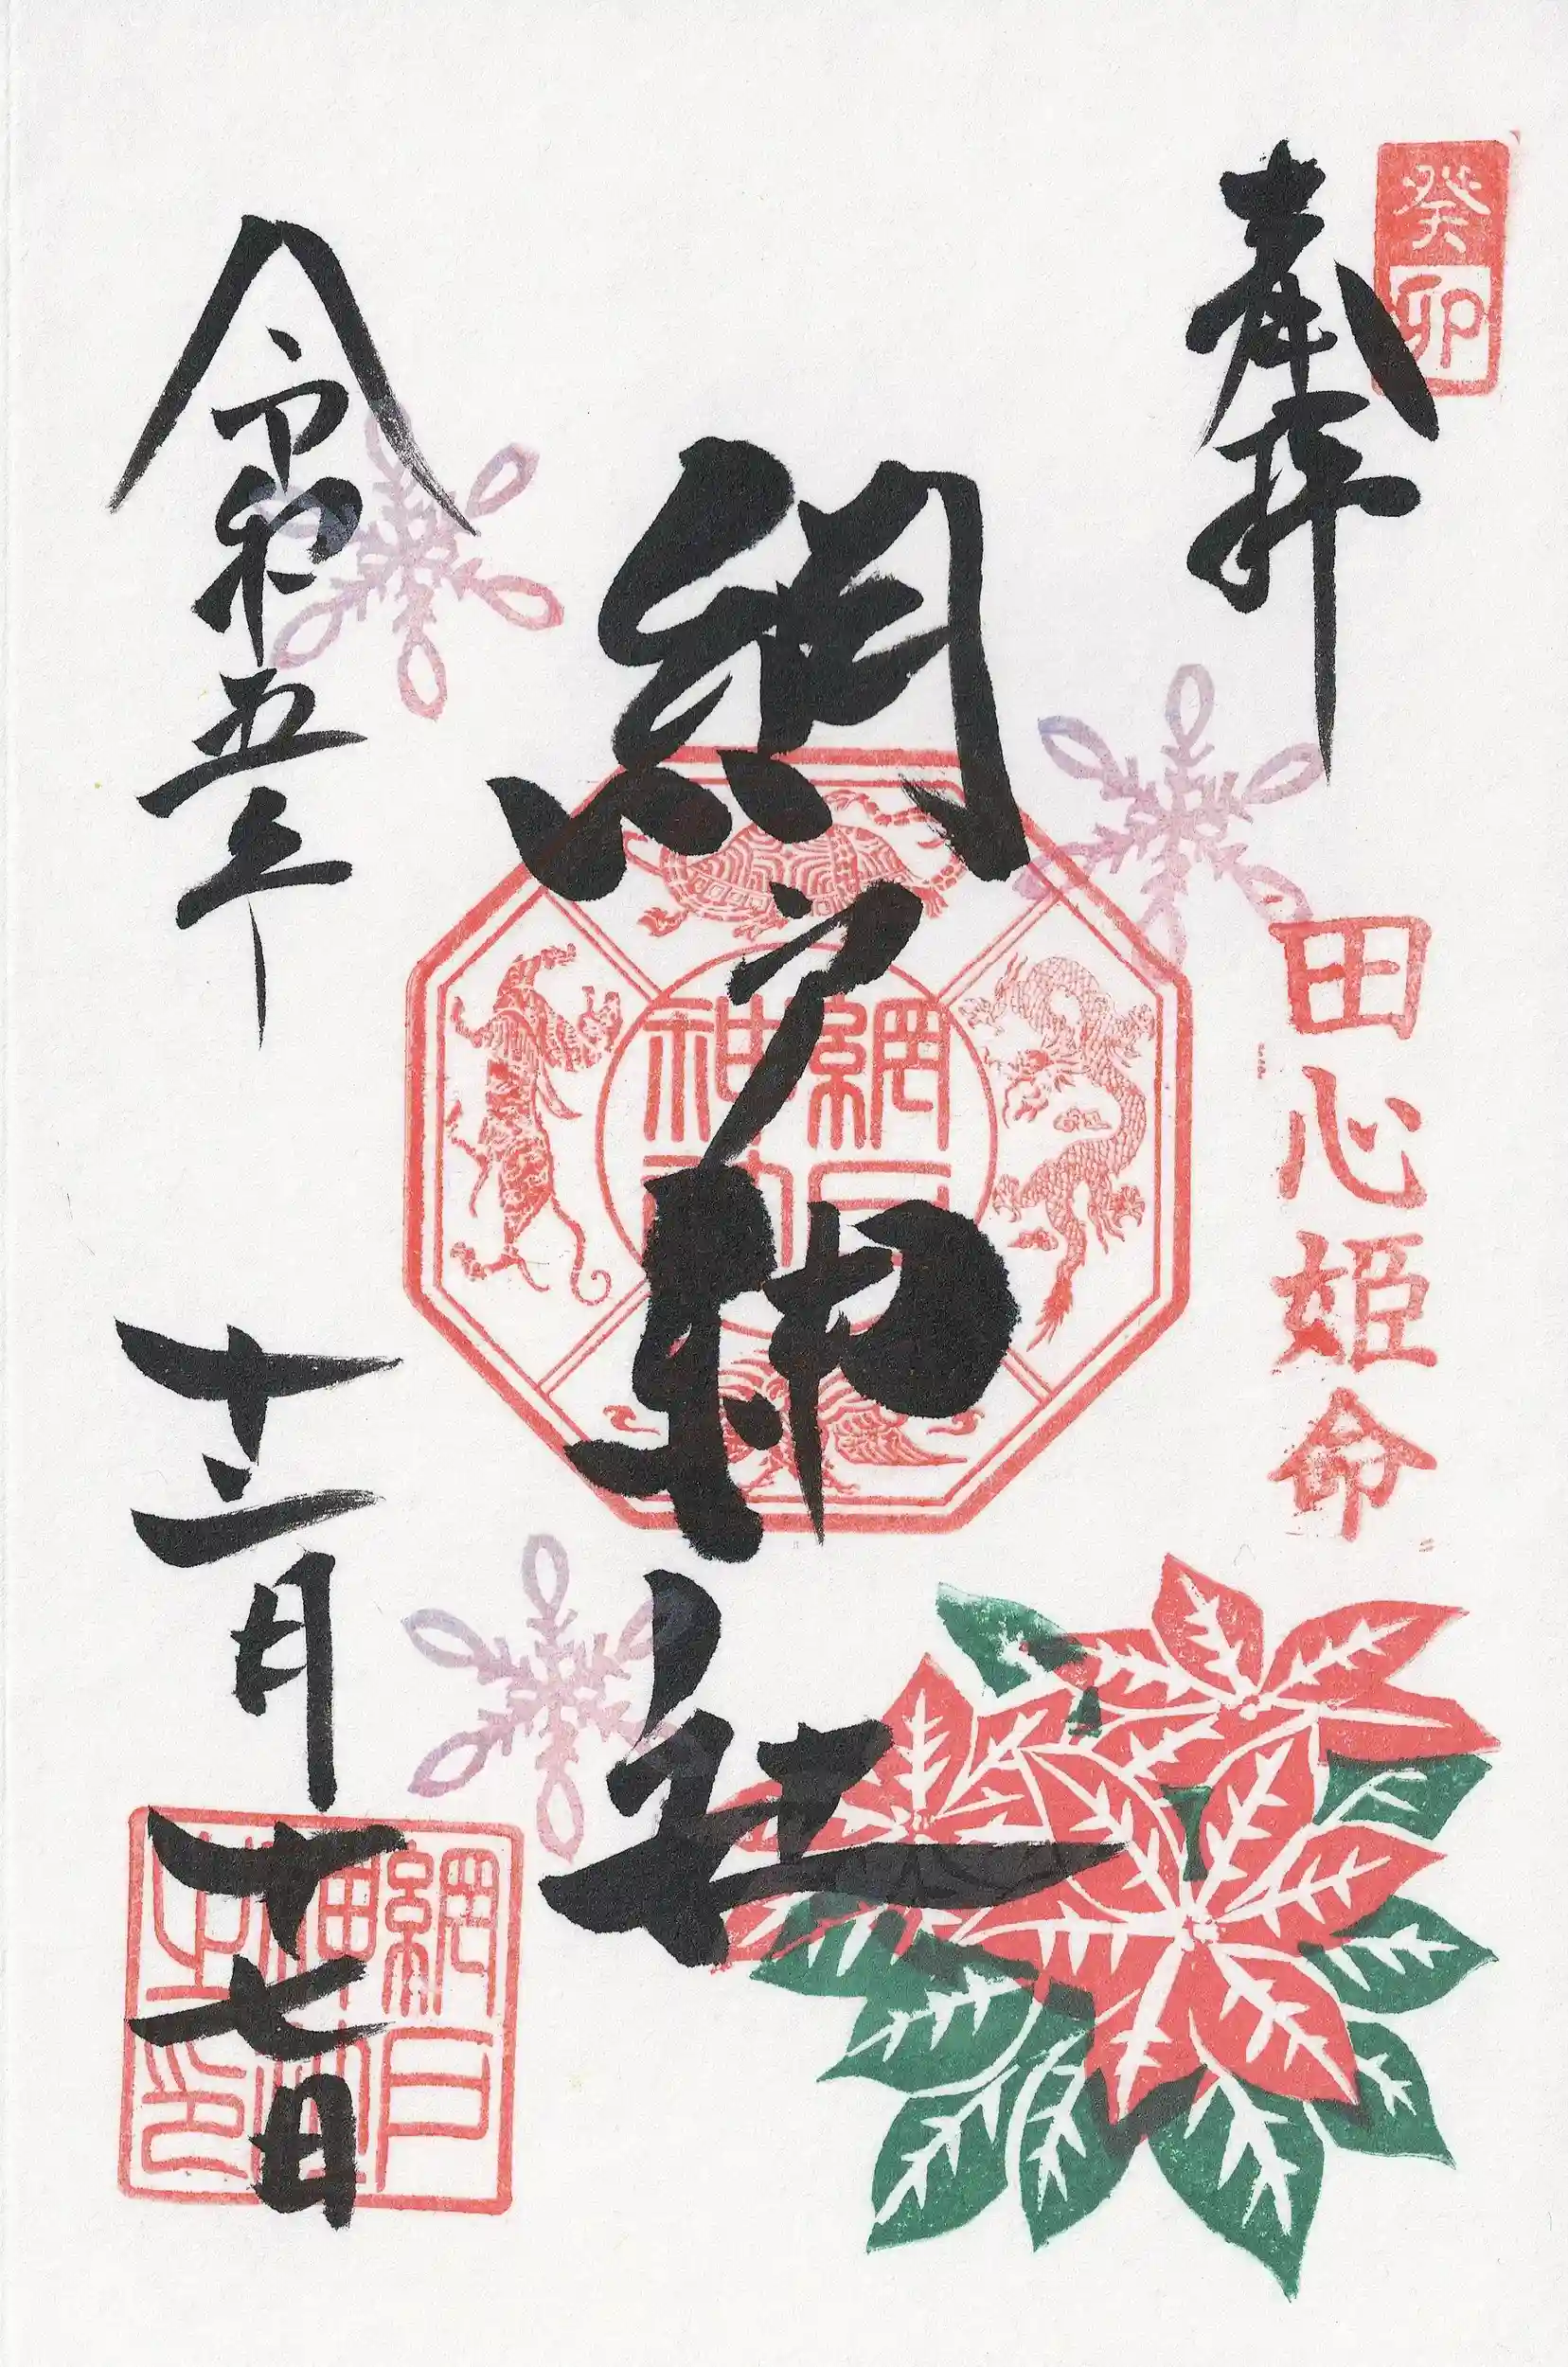 癸卯
奉拝
田心姫命
網戸神社
網戸神社
令和五年
十二月十七日
網戸神社之印